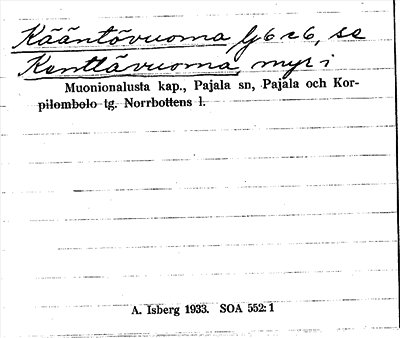 Kääntövuoma lj6c6, se
Kenttävuoma, myr i
Muonionalusta kap., Pajala sn, Pajala och Kor-
pilombolo tg. Norrbottens l.
A. Isberg 1933. SOA 552:1